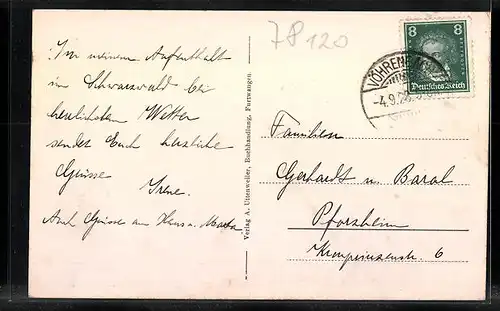 78120
In meinem Aufenthalt
im Schwarzwald bei
herrlichstem Wetter
sendet Euch herzliche
Grüsse
Irene.
Auch Grüsse an Hans u. Marta
Verlag A. Uttenweiler, Buchhandlung, Furtwangen.
8 8
Deutsches Reich
VÖHRENB
-4.9.26
Familien
Gerhardt u. Baral
Pforzheim
Kronprinzenstr. 6